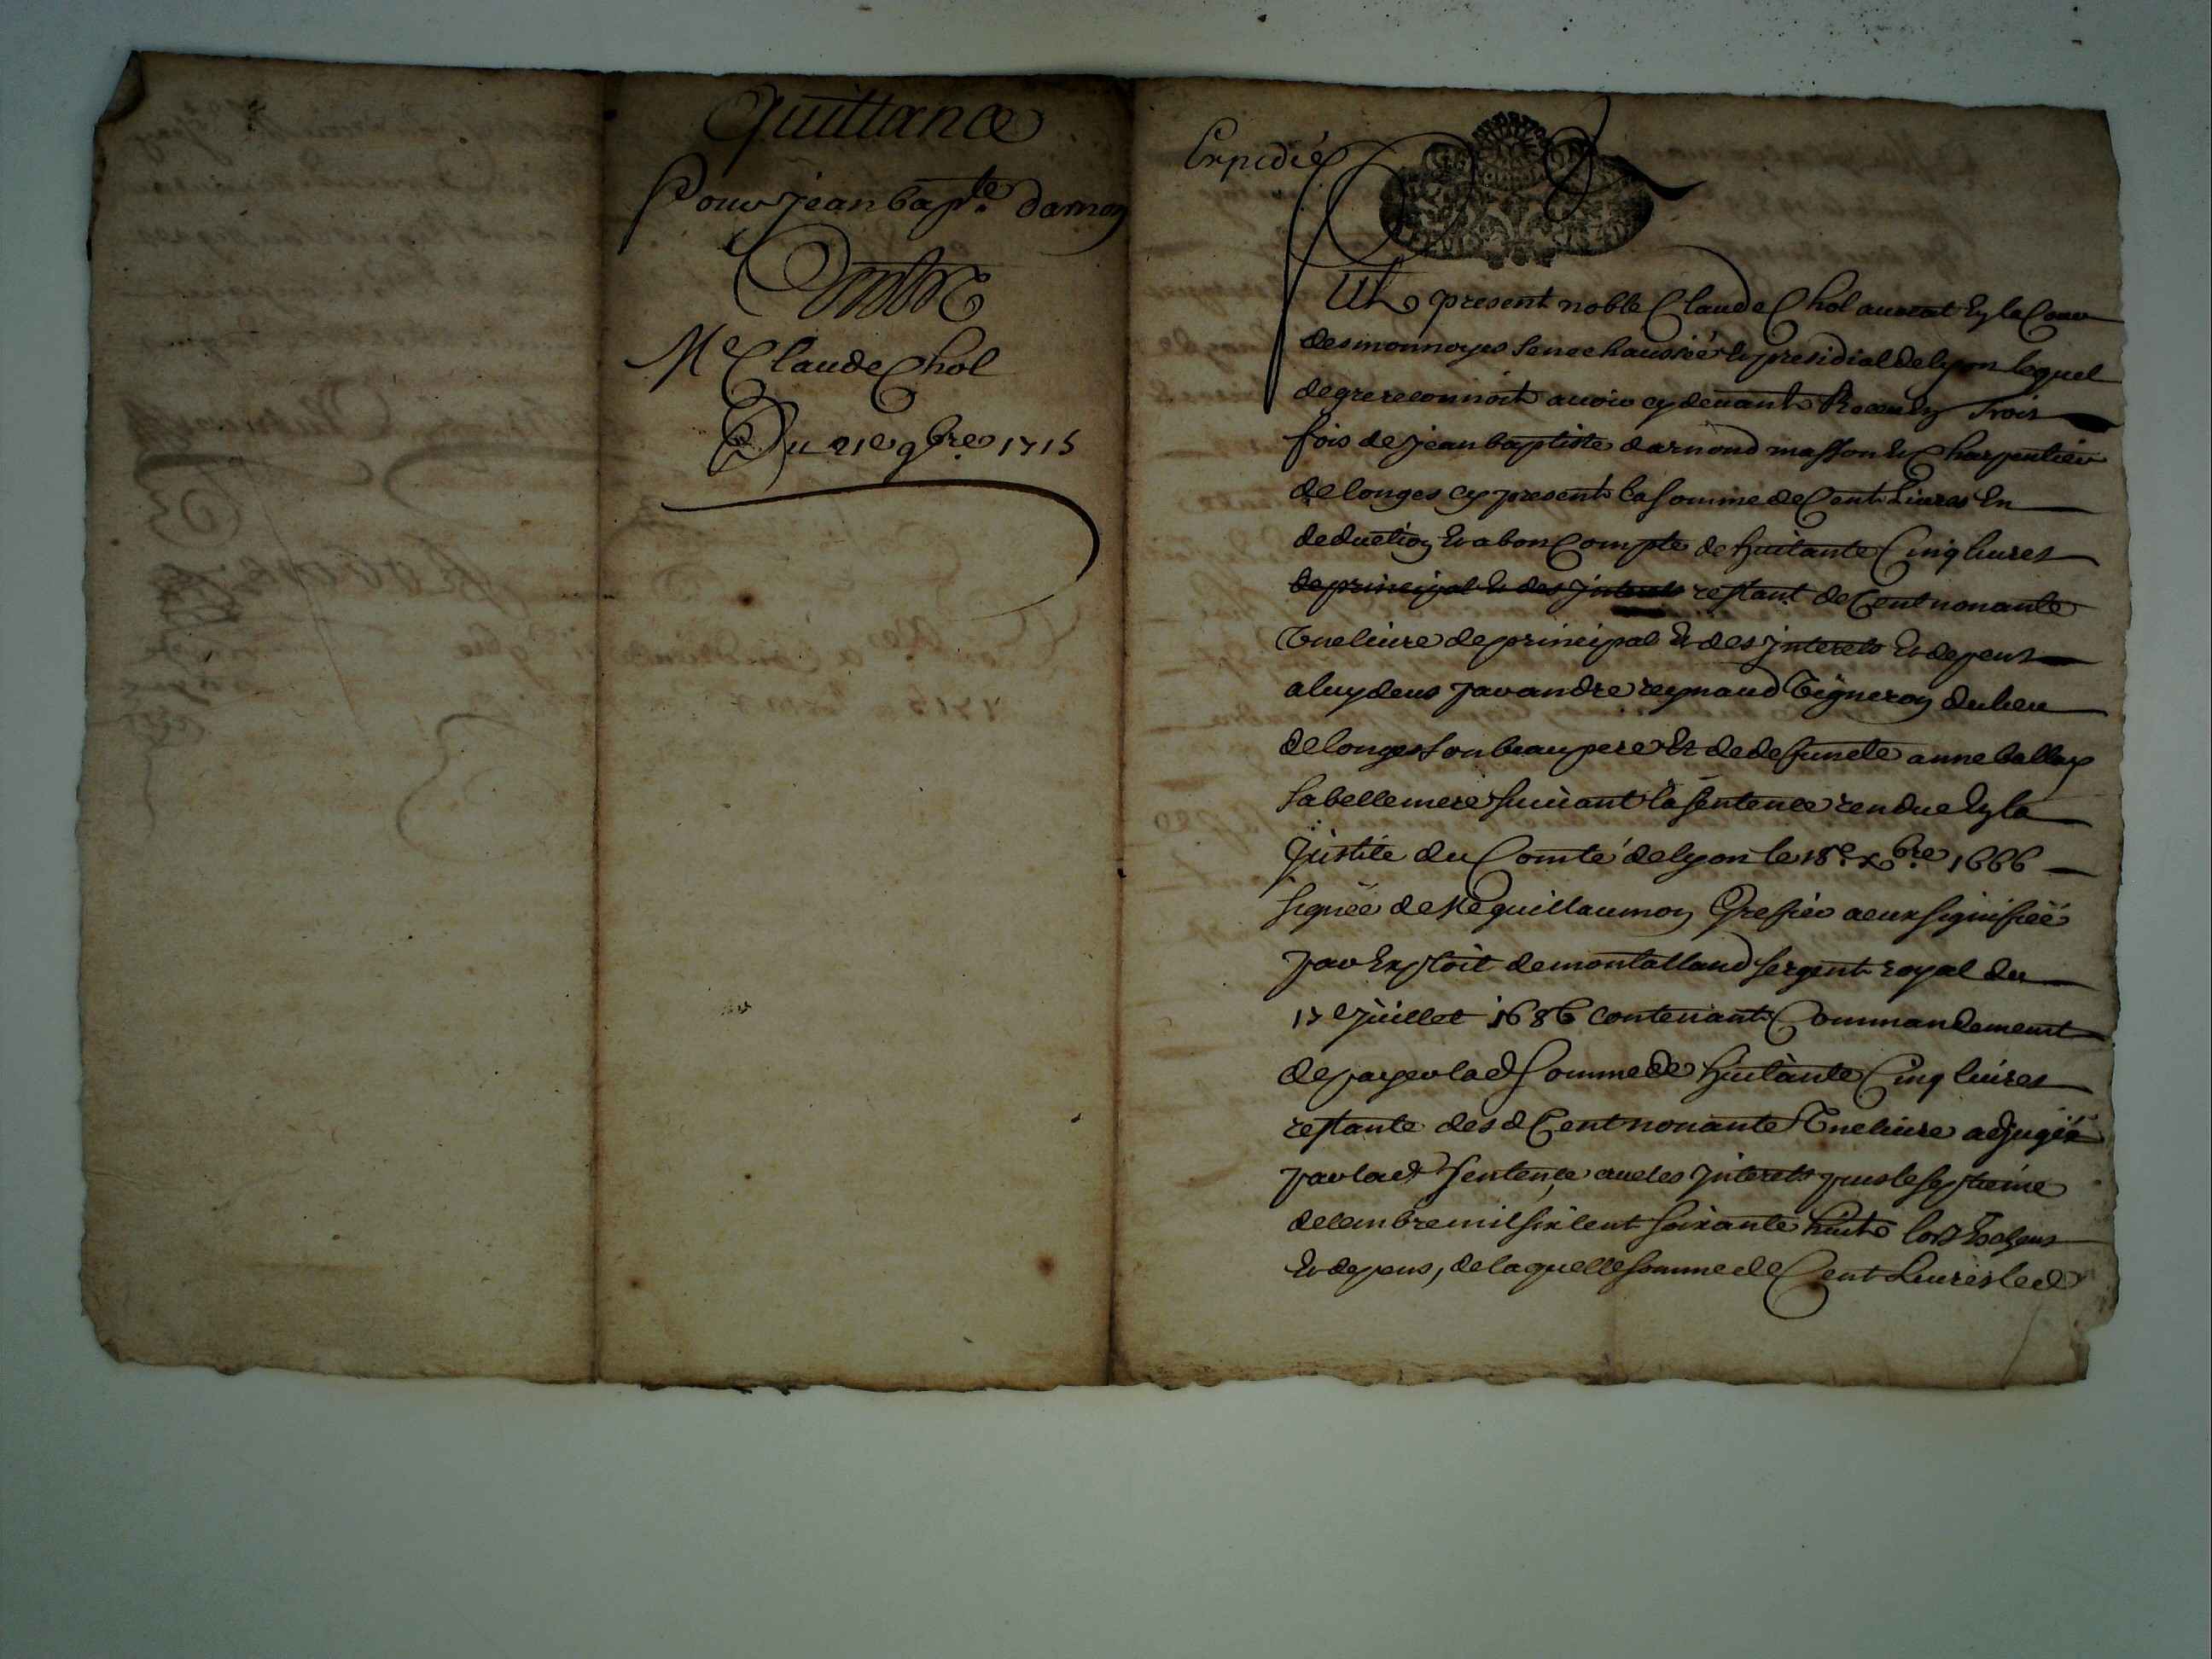 Quittance
Pour jean bap.te darnon
Contre
Me Claude Chol
Du 21e 9bre 1715
Expedié
fut present noble Claude Chol auocat En la Cour
des monnoyes senechaussée et presidial de lyon lequel
de gre reconnoit auoir cy deuant Receu En Trois
fois de jean baptiste darnond masson et Charpentier
de longes cy present la somme de Cent Liures En
deduction Et a bon Compte de huitante Cinq liures
de principal Et des jnterets restant de Cent nonante
Vne liure de principal Et des jnterets Et depens
a luy deus par andre reynaud Vigneron du lieu
de longes son beaupere Et de defuncte anne ballay
sa belle mere suiuant la sentence rendue En la
justice du Comté de lyon le 18e xbre 1666
signée de Me guillaumon Greffier a eux signiffiée
par Exploit de montalland sergent royal du
17e juillet 1686 contenant Commandement
de payer lad somme de huitante Cinq liures
restante desd Cent nonante Vne liure adjugée
par lad sentence auec les jnterets puis le septieme
decembre mil six cent soixante huit
Et depens, de laquelle somme de Cent Liures led